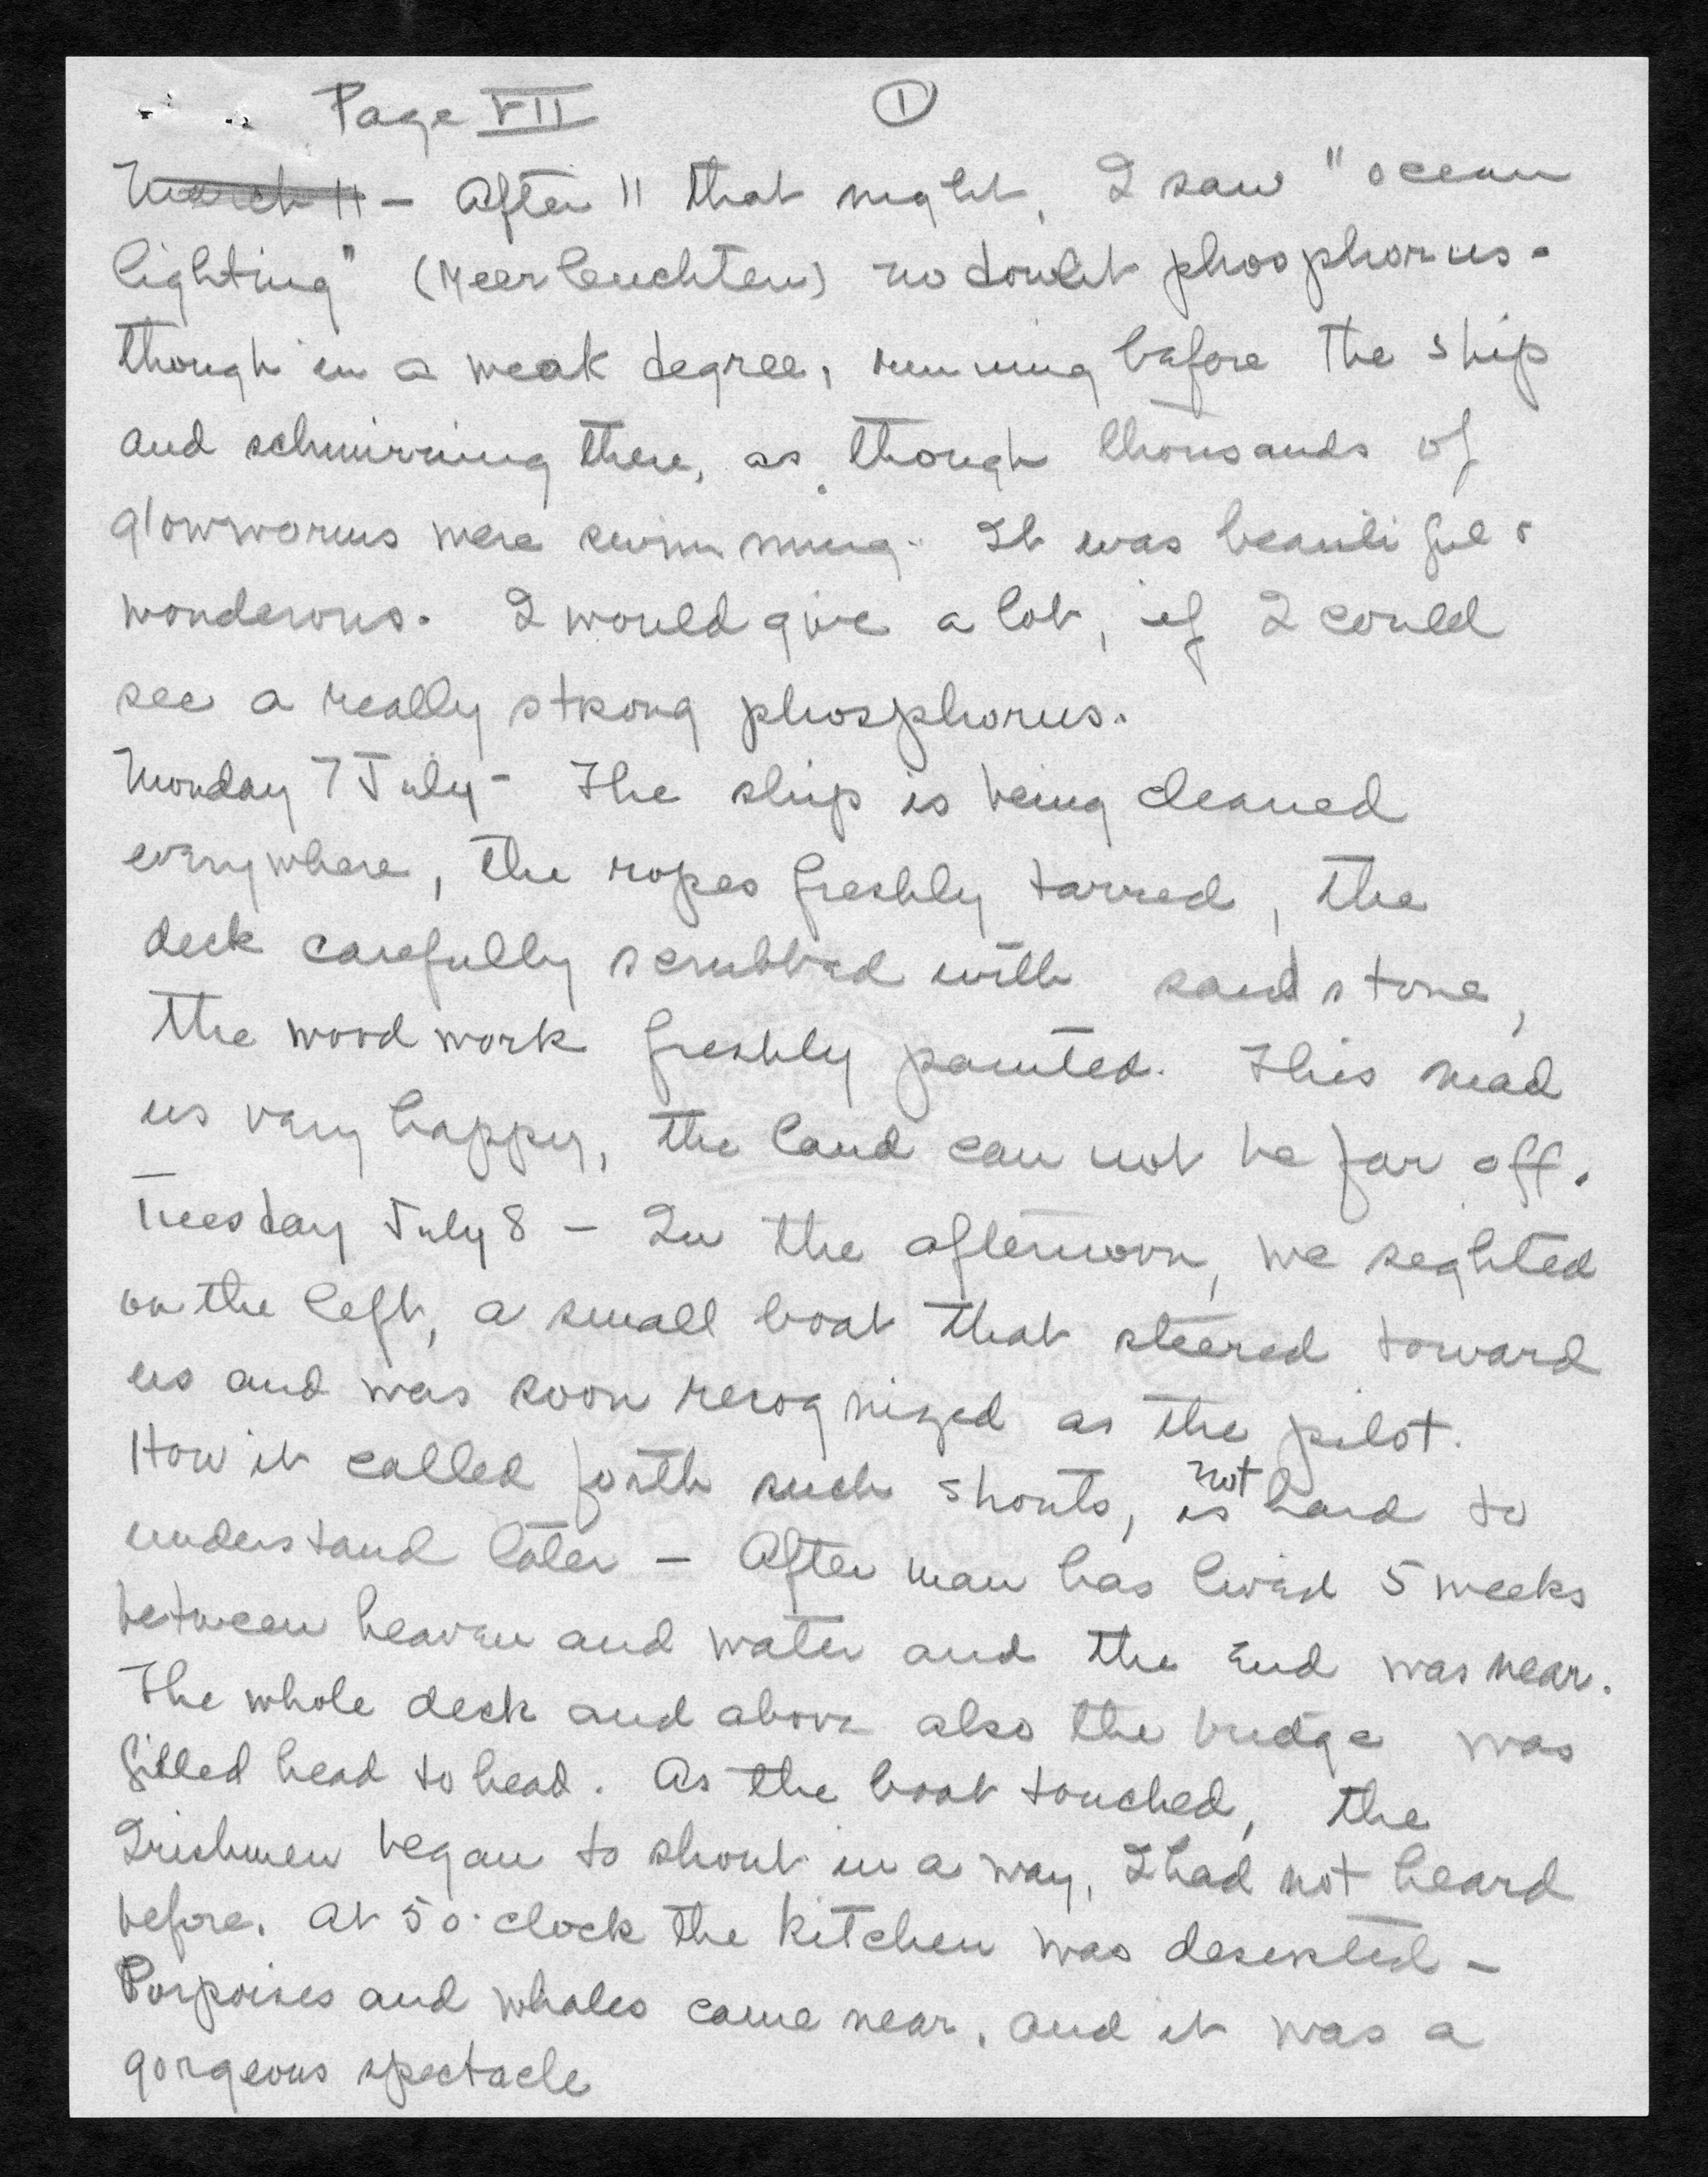 Page VII ①
March 11 – After 11 that night, I saw "ocean
lighting" (Meerleuchten) no doubt phosphorus.
though in a weak degree, running before the ship
and schmirring there, as though thousands of
glowworms were swimming. It was beautiful &
wonderous. I would give a lot, if I could
see a really strong phosphorus.
Monday 7 July – The ship is being cleaned
everywhere, the ropes freshly tarred, the
deck carefully scrubbed with sandstone,
the wood work freshly painted. This mad
us very happy, the land can not be far off.
Tuesday July 8 – In the afternoon, we sighted
on the left, a small boat that steered toward
us and was soon recognized as the pilot.
How it called forth such shouts, is not hard to
understand later – After man has lived 5 weeks
between heaven and water and the End was near.
The whole deck and above also the bridge was
filled head to head. As the boat touched, the
Irishmen began to shout in a way, I had not heard
before. At 5 o'clock the kitchen was deserted –
Porpoises and whales came near, and it was a
gorgeous spectacle